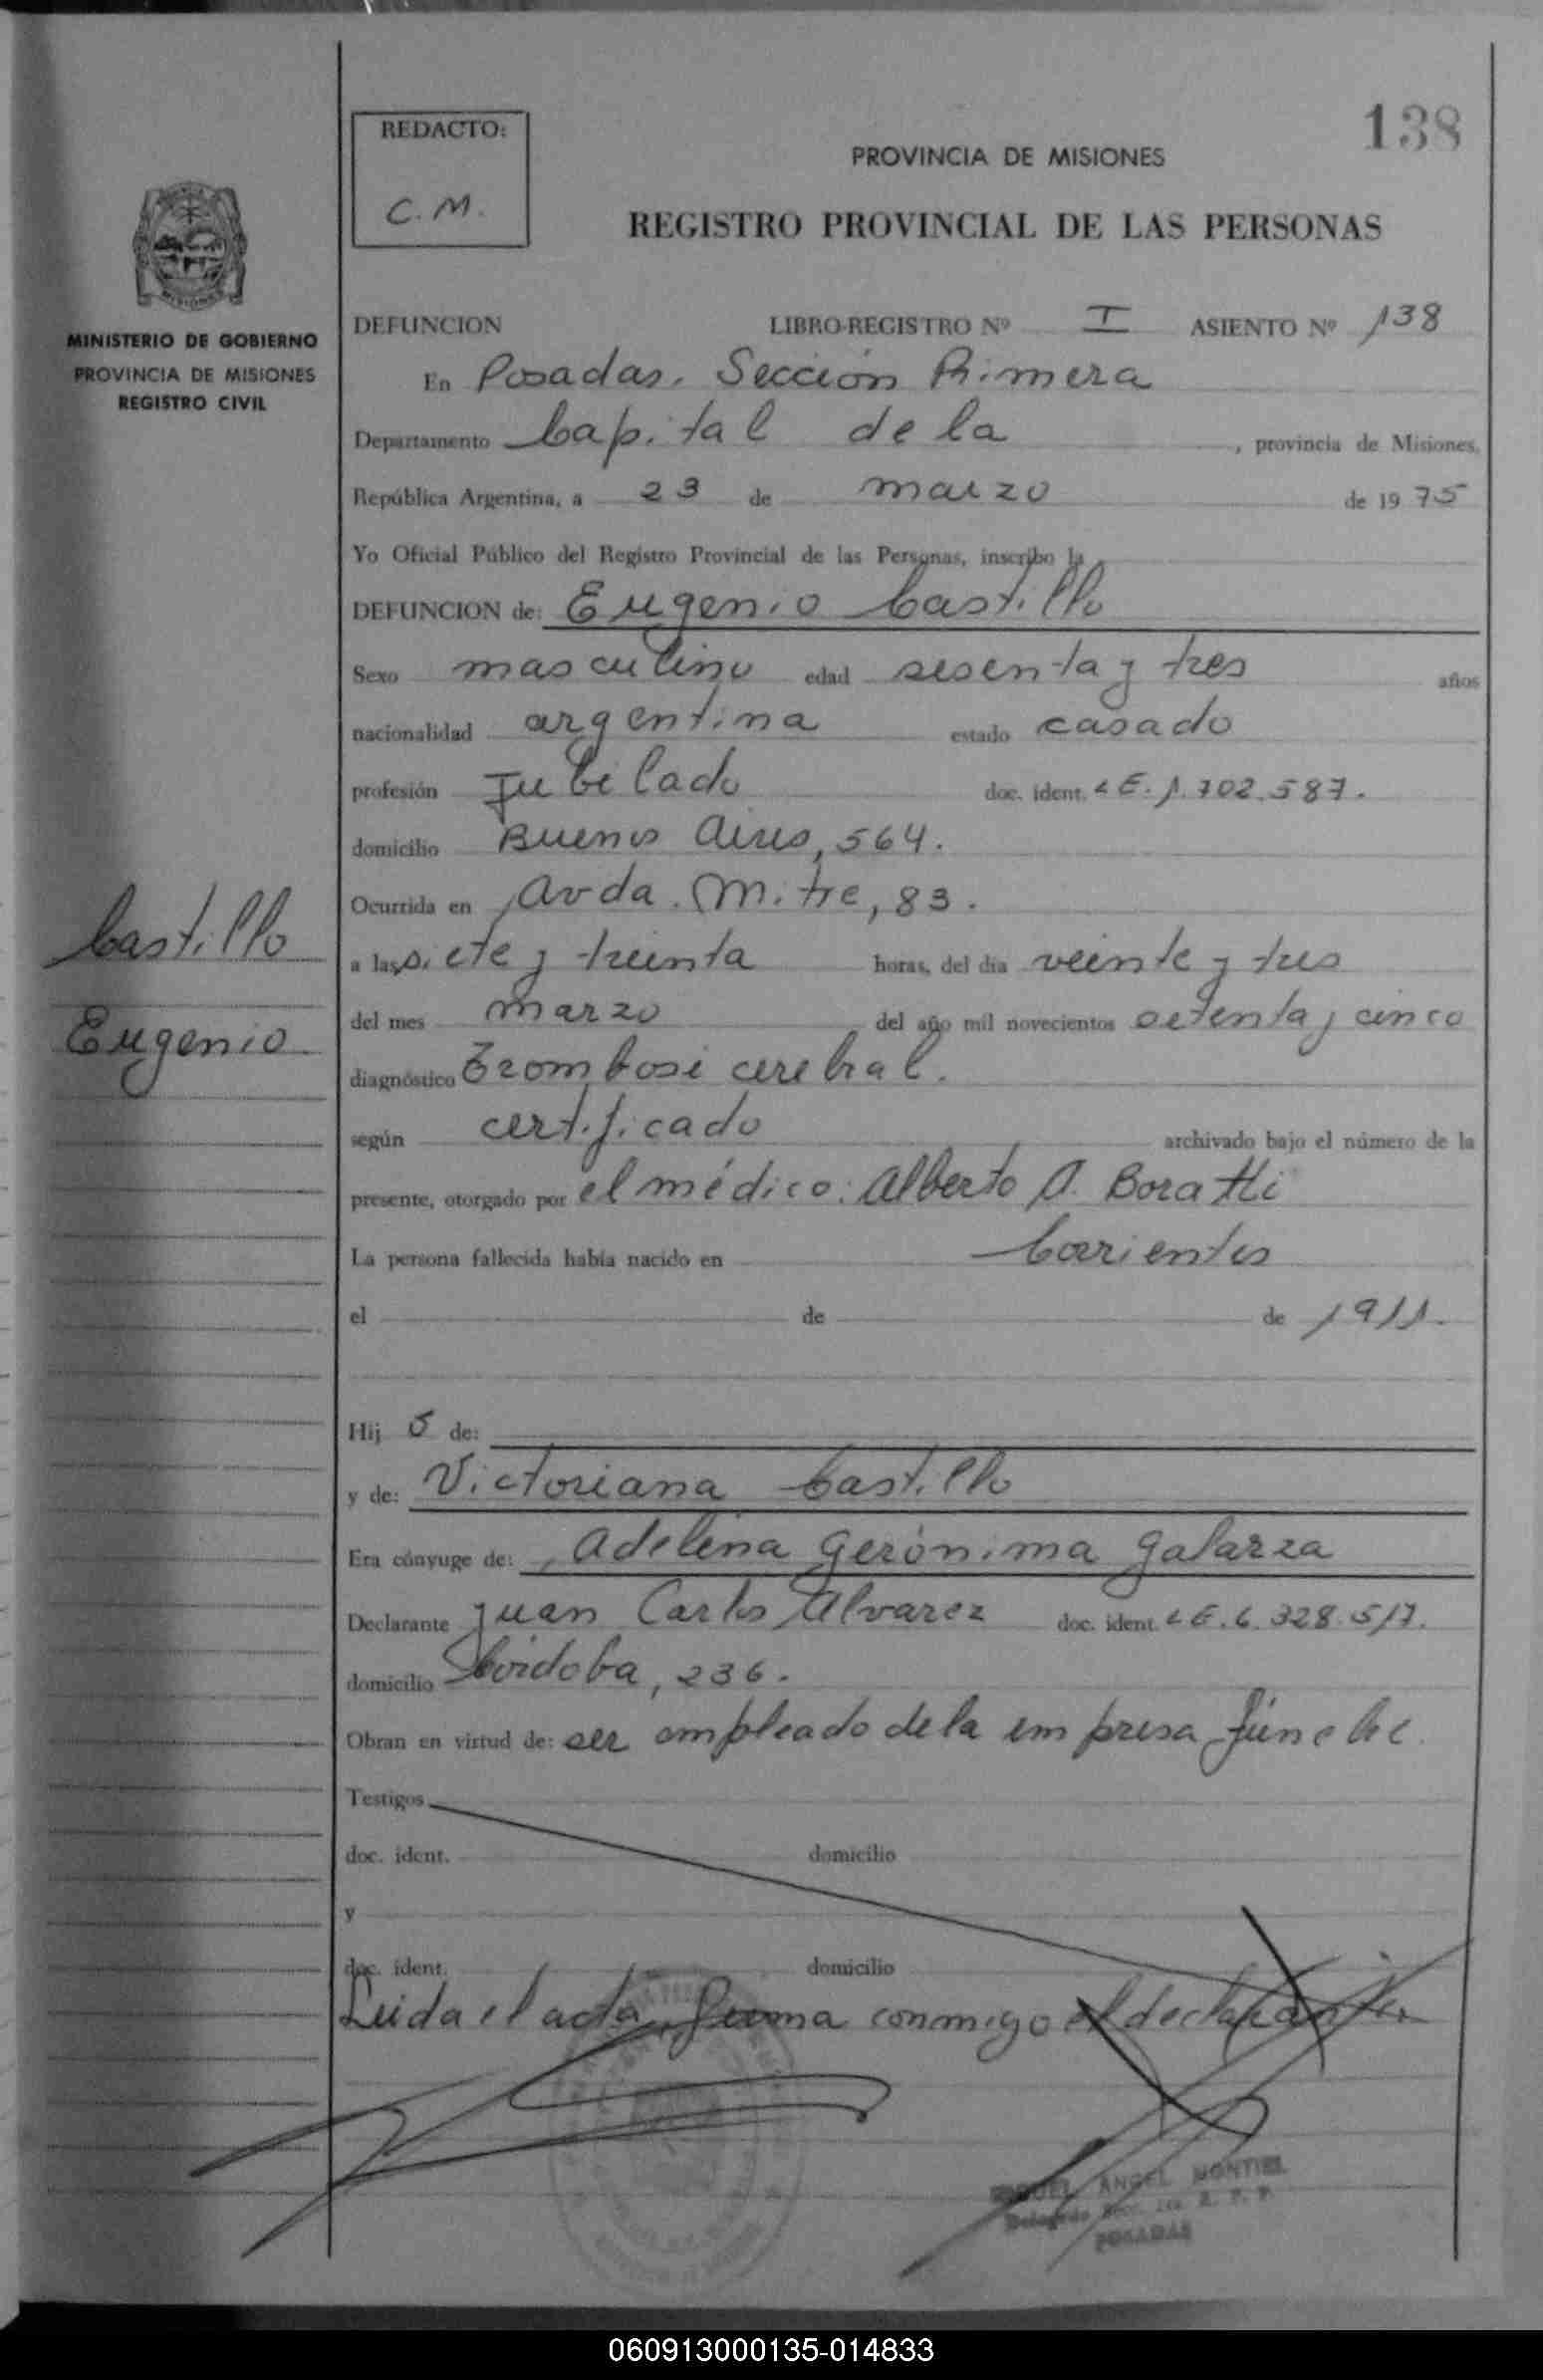 138
REDACTO:
C. M.
PROVINCIA DE MISIONES
REGISTRO PROVINCIAL DE LAS PERSONAS
MISIONES
MINISTERIO DE GOBIERNO
PROVINCIA DE MISIONES
REGISTRO CIVIL
DEFUNCION LIBRO-REGISTRO Nº I ASIENTO Nº 138
En Posadas, Sección Primera
Departamento Capital de la , provincia de Misiones,
República Argentina, a 23 de marzo de 1975
Yo Oficial Público del Registro Provincial de las Personas, inscribo la
DEFUNCION de: Eugenio Castillo
Sexo masculino edad sesenta y tres años
nacionalidad argentina estado casado
profesión Jubilado doc. ident. LE. 1.702.587.
domicilio Buenos Aires, 564.
Ocurrida en Avda. Mitre, 83.
a las siete y treinta horas, del día veinte y tres
del mes marzo del año mil novecientos setenta y cinco
diagnóstico Trombosi cerebral.
según certificado archivado bajo el número de la
presente, otorgado por el médico: Alberto A. Boratti
La persona fallecida había nacido en Corrientes
el de de 1911.
Castillo
Eugenio
Hij o de:
y de: Victoriana Castillo
Era cónyuge de: Adelina Gerónima Galarza
Declarante Juan Carlos Alvarez doc. ident. LE. 6.328.517.
domicilio Córdoba, 236.
Obran en virtud de: ser empleado de la empresa fúnebre.
Testigos
doc. ident. domicilio
y
doc. ident. domicilio
Leida el acta, firma conmigo el declarante.
MIGUEL ANGEL MONTIEL
Delegado Secc. 1ra. R. P. P.
POSADAS
060913000135-014833